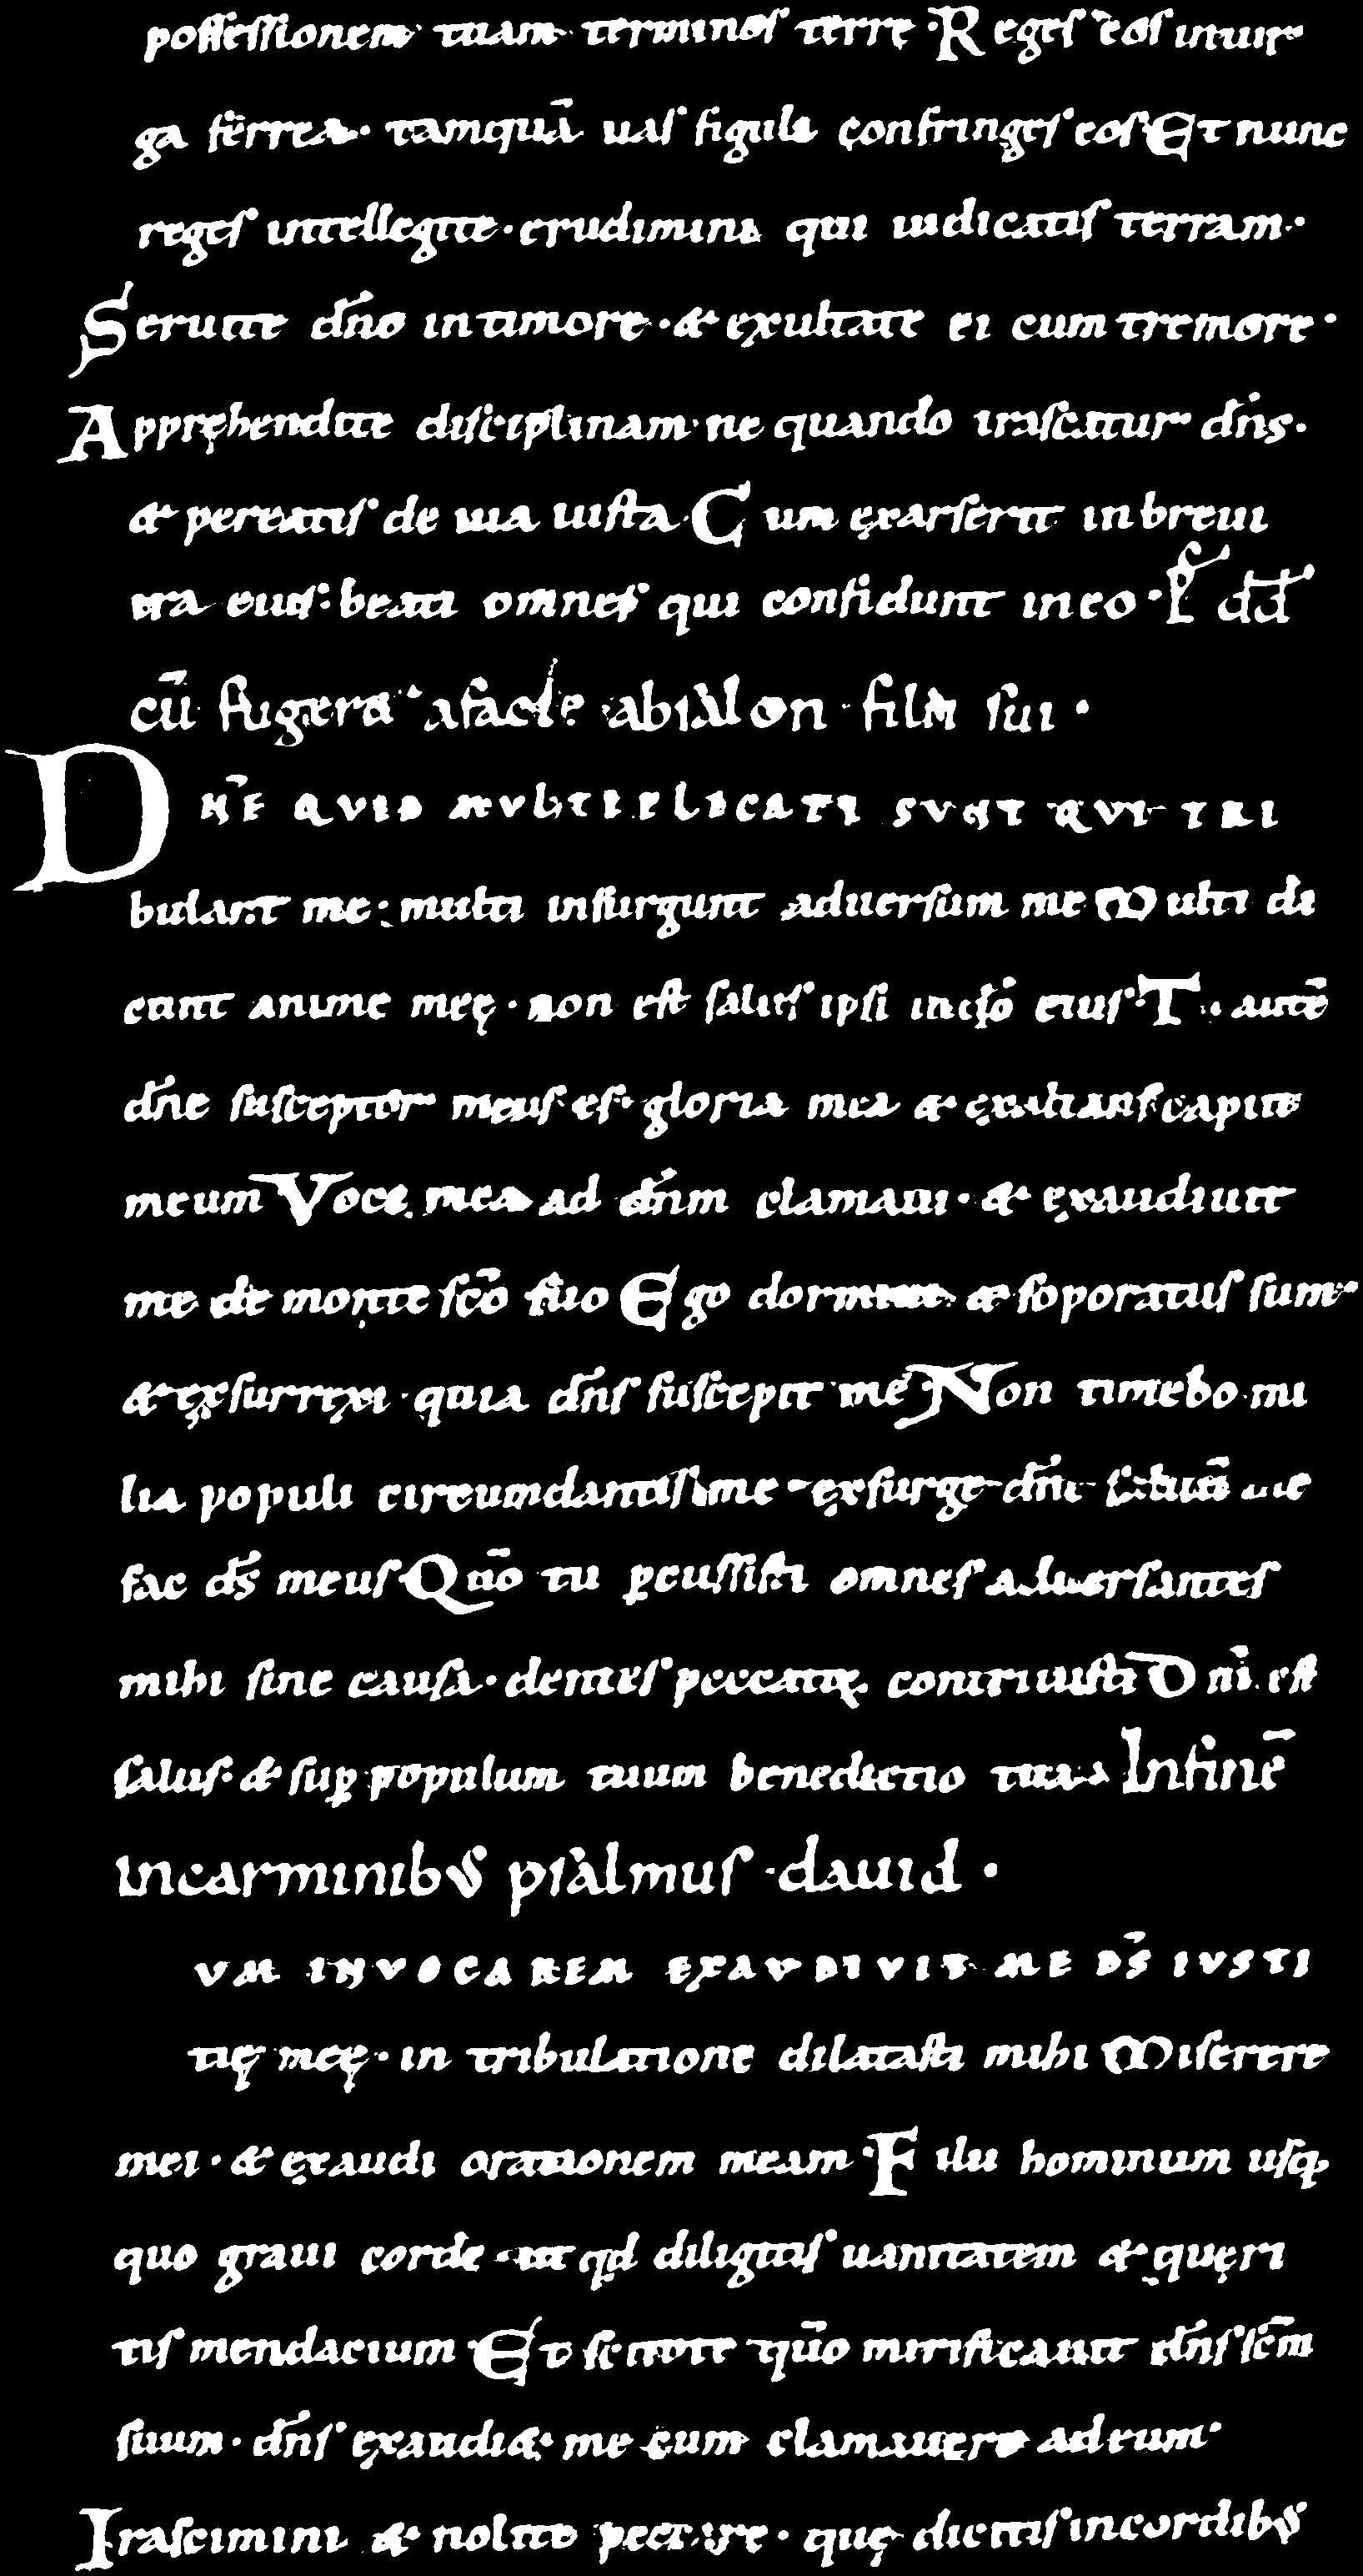 possessionem tuam terminos terrę · Reges eos inuir
ga ferrea · tamquā uas figuli confringes eos Et nunc
reges intellegite · erudimini qui iudicatis terram ·
Seruite dn̄o in timore · & exultate ei cum tremore ·
Appręhendite disciplinam · ne quando irascatur dn̄s ·
& pereatis de uia iusta · Cum ęxarserit in breui
ira eius : beati omnes qui confidunt in eo · ps̄ dd̄
cū fugeret a facie abisalon filii sui ·
DN̄E QVID MVLTIPLICATI SVNT QVI TRI
bulant me : multi insurgunt aduersum me Multi di
cunt animę meę · non est salus ipsi in dō eius · Tu autē
dn̄e susceptor meus es · gloria mea & ęxaltans caput
meum Voce mea ad dn̄m clamaui · & ęxaudiuit
me de monte scō suo Ego dormiui & soporatus sum
& ęxsurrexi · quia dn̄s suscepit me Non timebo mi
lia populi circumdantis me · ęxsurge dn̄e saluū me
fac ds̄ meus Qūo tu ꝑcussisti omnes aduersantes
mihi sine causa · dentes peccatoꝝ contriuisti Dn̄i est
salus : & suꝑ populum tuum benedictio tua Infinē
in carminibus psalmus dauid ·
VM INVOCAREM EXAVDIVIT ME DS̄ IVSTI
tię meę · in tribulatione dilatasti mihi Miserere
mei · & ęxaudi orationem meam · Filii hominum usq
quo graui corde · ut qd diligitis uanitatem & quęri
tis mendacium Et scitote qūo mirificauit dn̄s sc̄m
suum · dn̄s ęxaudi& me cum clamauero ad eum
Irascimini & nolite peccare · quę dicitis in cordibus